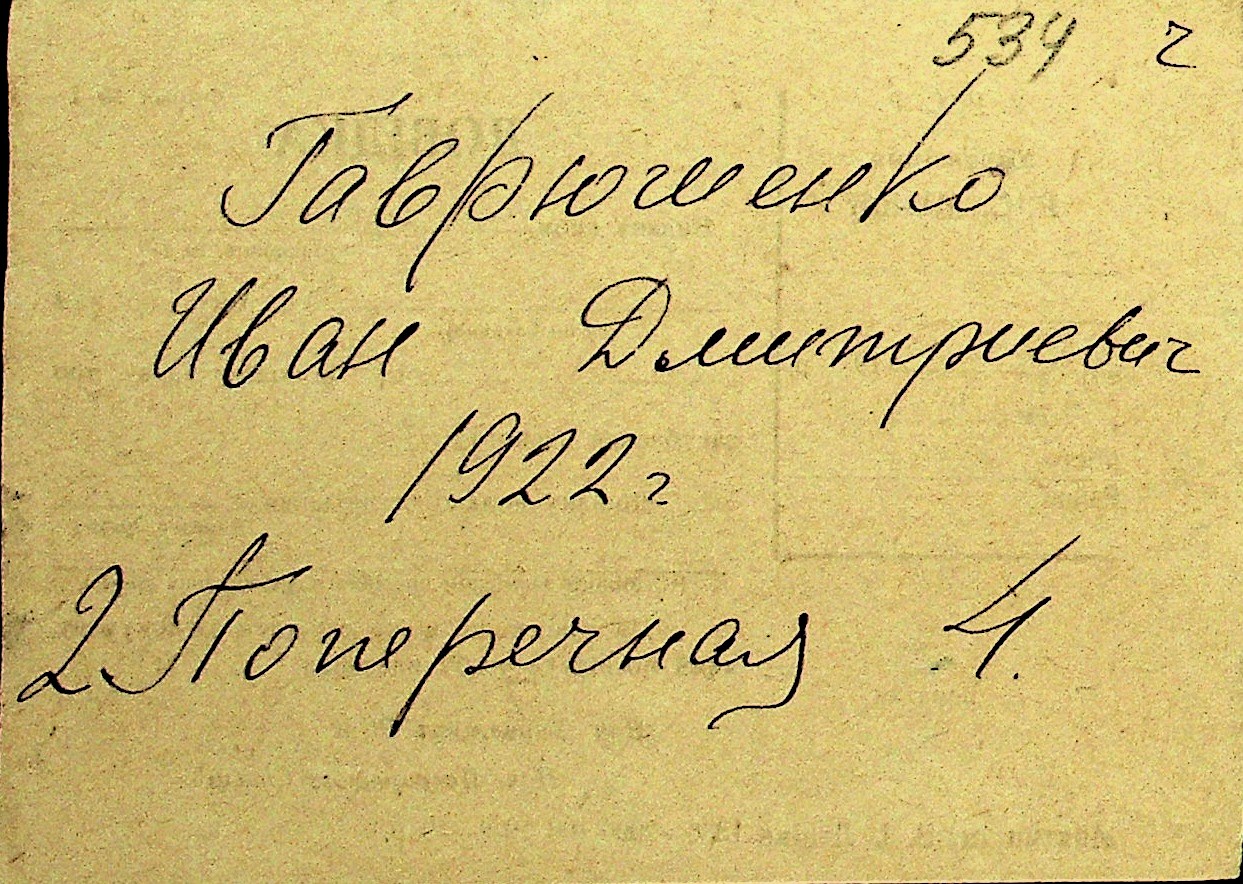 534 ч
Гаврюшенко
Иван Дмитриевич
1922 г
2 Поперечная 4.